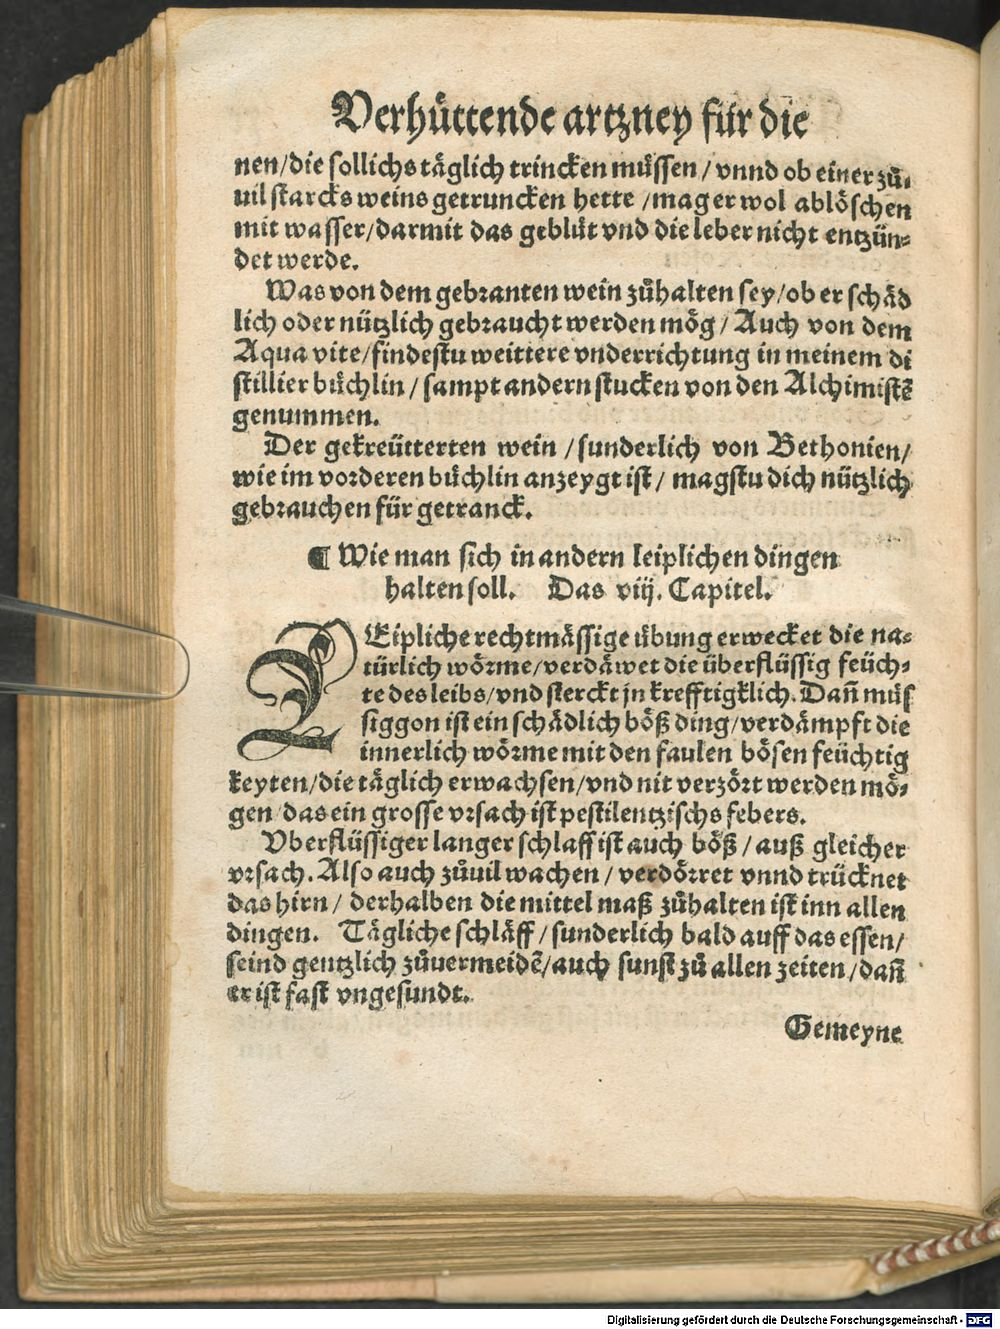 Verhüttende artzney für die
nen/die sollichs täglich trincken müssen/vnnd ob einer zů⸗
uil starcks weins getruncken hette/mag er wol ablöschen
mit wasser/darmit das geblüt vnd die leber nicht entzün⸗
det werde.
Was von dem gebranten wein zůhalten sey/ob er schäd
lich oder nützlich gebraucht werden mög/Auch von dem
Aqua vite/findestu weittere vnderrichtung in meinem di
stillier büchlin/sampt andern stucken von den Alchimistẽ
genummen.
Der gekreütterten wein/sunderlich von Bethonien/
wie im vorderen büchlin anzeygt ist/magstu dich nützlich
gebrauchen für getranck.
¶ Wie man sich in andern leiplichen dingen
halten soll. Das viij. Capitel.
LEipliche rechtmässige übung erwecket die na⸗
türlich wörme/verdäwet die überflüssig feüch⸗
te des leibs/vnd sterckt jn krefftigklich. Dañ müs
siggon ist ein schädlich böß ding/verdämpft die
innerlich wörme mit den faulen bösen feüchtig
keyten/die täglich erwachsen/vnd nit verzört werden mö⸗
gen/das ein grosse vrsach ist pestilentzischs febers.
Vberflüssiger langer schlaff ist auch böß/auß gleicher
vrsach. Also auch zůuil wachen/verdörret vnnd trücknet
das hirn/derhalben die mittel maß zůhalten ist inn allen
dingen. Tägliche schläff/sunderlich bald auff das essen/
seind gentzlich zůuermeidẽ/auch sunst zů allen zeiten/dañ
er ist fast vngesundt.
Gemeyne
Digitalisierung gefördert durch die Deutsche Forschungsgemeinschaft - DFG